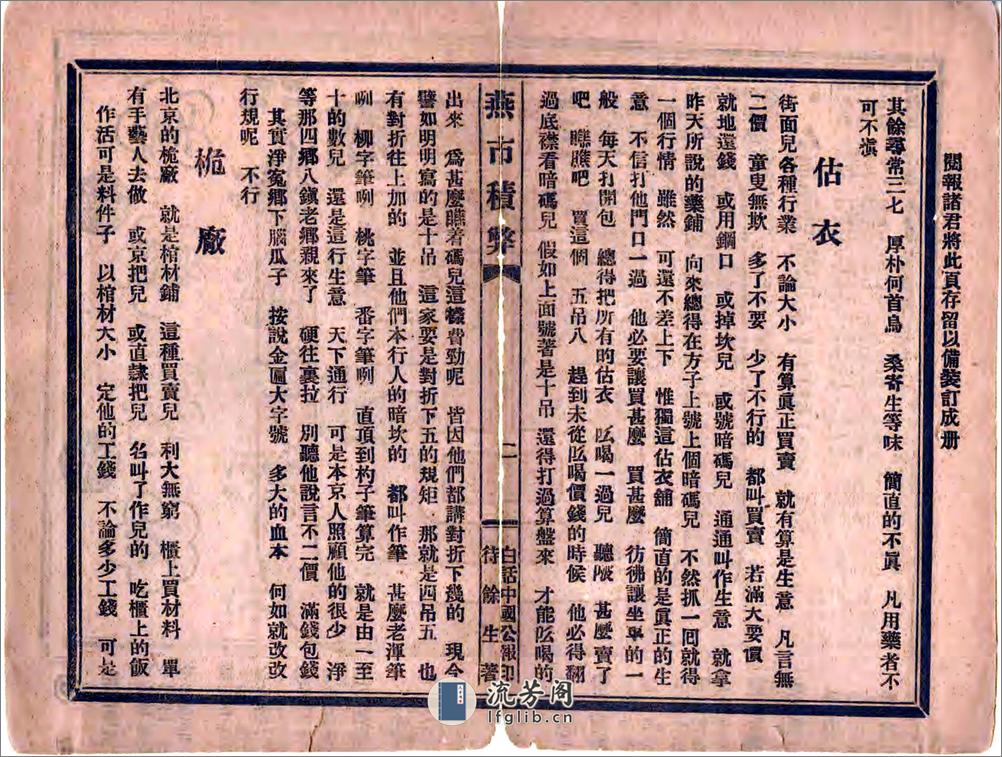 閱報諸君將此頁存留以備裝訂成册
其餘尋常三七　厚朴何首烏　桑寄生等味　簡直的不眞　凡用藥者不
可不愼
估衣
街面兒各種行業　不論大小　有算眞正買賣　就有算是生意　凡言無
二價　童叟無欺　多了不要　少了不行的　都叫買賣　若滿大要價
就地還錢　或用鋼口　或掉坎兒　或號暗碼兒　通通叫作生意　就拿
昨天所說的藥鋪　向來總得在方子上號上個暗碼兒　不然抓一回就得
一個行情　雖然　可還不差上下　惟獨這估衣舖　簡直的是眞正的生
意　不信打他門口一過　他必要讓買甚麼　買甚麼　彷彿讓坐車的一
般　每天打開包　總得把所有的估衣　吆喝一過兒　聽陂　甚麼賣了
吧　瞧瞧吧　買這個　五吊八　趕到未從吆喝價錢的時候　他必得翻
過底襟看暗碼兒　假如上面號著是十吊　還得打過算盤來　才能吆喝的
燕市積弊
二
白話中國公報印
待餘生著
出來　爲甚麼瞧着碼兒這麼費勁呢　皆因他們都講對折下幾的　現今
譬如明明寫的是十吊　這家要是對折下五的規矩　那就是四吊五　也
有對折往上加的　並且他們本行人的暗坎的　都叫作筆　甚麼老渾筆
咧　柳字筆咧　桃字筆　番字筆咧　直頂到杓子筆算完　就是由一至
十的數兒　還是這行生意　天下通行　可是本京人照顧他的很少　淨
等那四鄉八鎭老鄉親來了　硬往裏拉　別聽他說言不二價　滿錢包錢
其實淨寃鄉下腦瓜子　按說金匾大字號　多大的血本　何如就改改
行規呢　不行
桅廠
北京的桅廠　就是棺材鋪　這種買賣兒　利大無窮　櫃上買材料　單
有手藝人去做　或京把兒　或直隸把兒　名叫了作兒的　吃櫃上的飯
作活可是料件子　以棺材大小　定他的工錢　不論多少工錢　可是
流芳阁
lfglib.cn